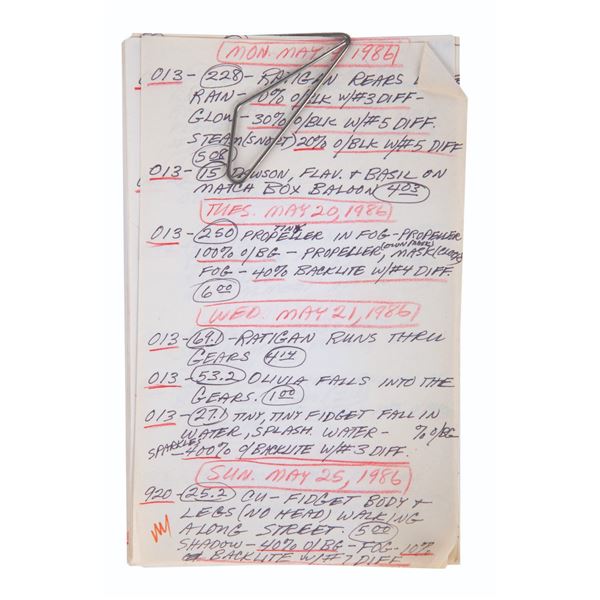 MON. MAY 1986
013 - 228 - RATIGAN REARS
RAIN - 0% O/BLK W/#3 DIFF -
GLOW - 30% O/BLK W/#5 DIFF.
STEAM (SNOUT) 20% O/BLK W/#5 DIFF
508
013 - 15 DAWSON, FLAV. + BASIL ON
MATCH BOX BALOON 403
TUES. MAY 20, 1986
013 - 250 PROPELLER IN FOG - PROPELLER
TINY
100% O/BG - PROPELLER, MASK
FOG - 40% BACKLITE W/#4 DIFF.
600
WED. MAY 21, 1986
013 - 69.1 - RATIGAN RUNS THRU
GEARS 414
013 - 53.2 OLIVIA FALLS INTO THE
GEARS. 100
013 - 27.1 TINY, TINY FIDGET FALL IN
WATER, SPLASH. WATER - % O/BG
SPARKLES - 400% O/BACKLITE W/#3 DIFF.
SUN. MAY 25, 1986
920 - 25.2 CU - FIDGET BODY +
LEGS (NO HEAD) WALKING
ALONG STREET - 500
SHADOW - 40% O/BG - FOG - 10%
BACKLITE W/#7 DIFF